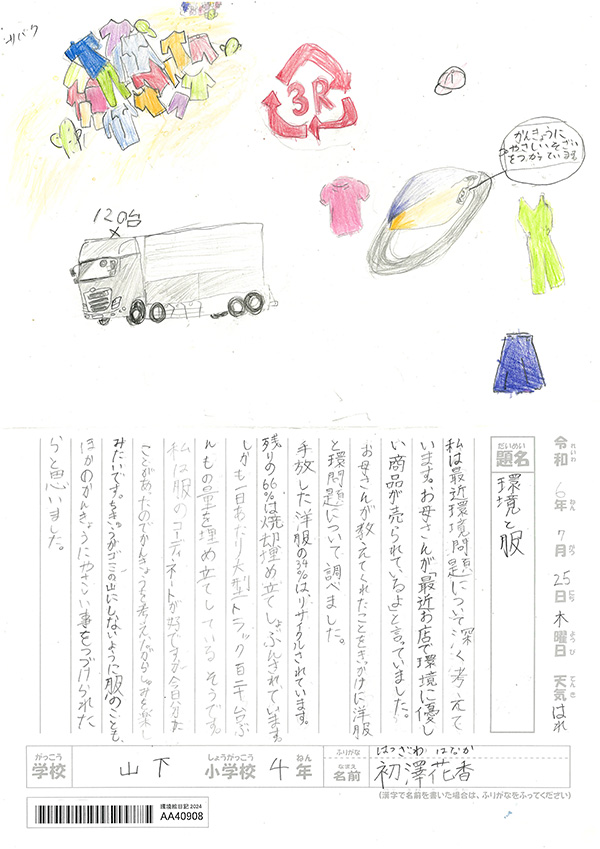 3R
がんきょうに
やさしいそざい
をつかっています
120台
令和6年7月25日木曜日 天気はれ
れいわ ねん がつ にち ようび てんき
だいめい
題名
環境と服
私は最近環境問題について深く考えて
います。お母さんが「最近お店で環境に優し
い商品が売られているよ」と言っていました。
お母さんが教えてくれたことをきっかけに洋服
と環問題について調べました。
手放した洋服の34%は、リサイクルされています。
残りの66%は焼却埋め立てしょぶんされています。
しかも一日あたり大型トラック百二十台ぶ
んもの量を埋め立てしているそうです。
私は服のコーディネートが好きですが今日分かった
ことがあったのでかんきょうも考えながらしゅみを楽し
みたいです。ちきゅうがゴミの山にしないように服のことも、
ほかのかんきょうにやさしい事をつづけられた
らと思いました。
がっこう
学校
山下
しょうがっこう
小学校
4
ねん
年
ふりがな
はつざわ はなか
なまえ
名前
初澤花香
(漢字で名前を書いた場合は、ふりがなをふってください)
環境絵日記2024
AA40908